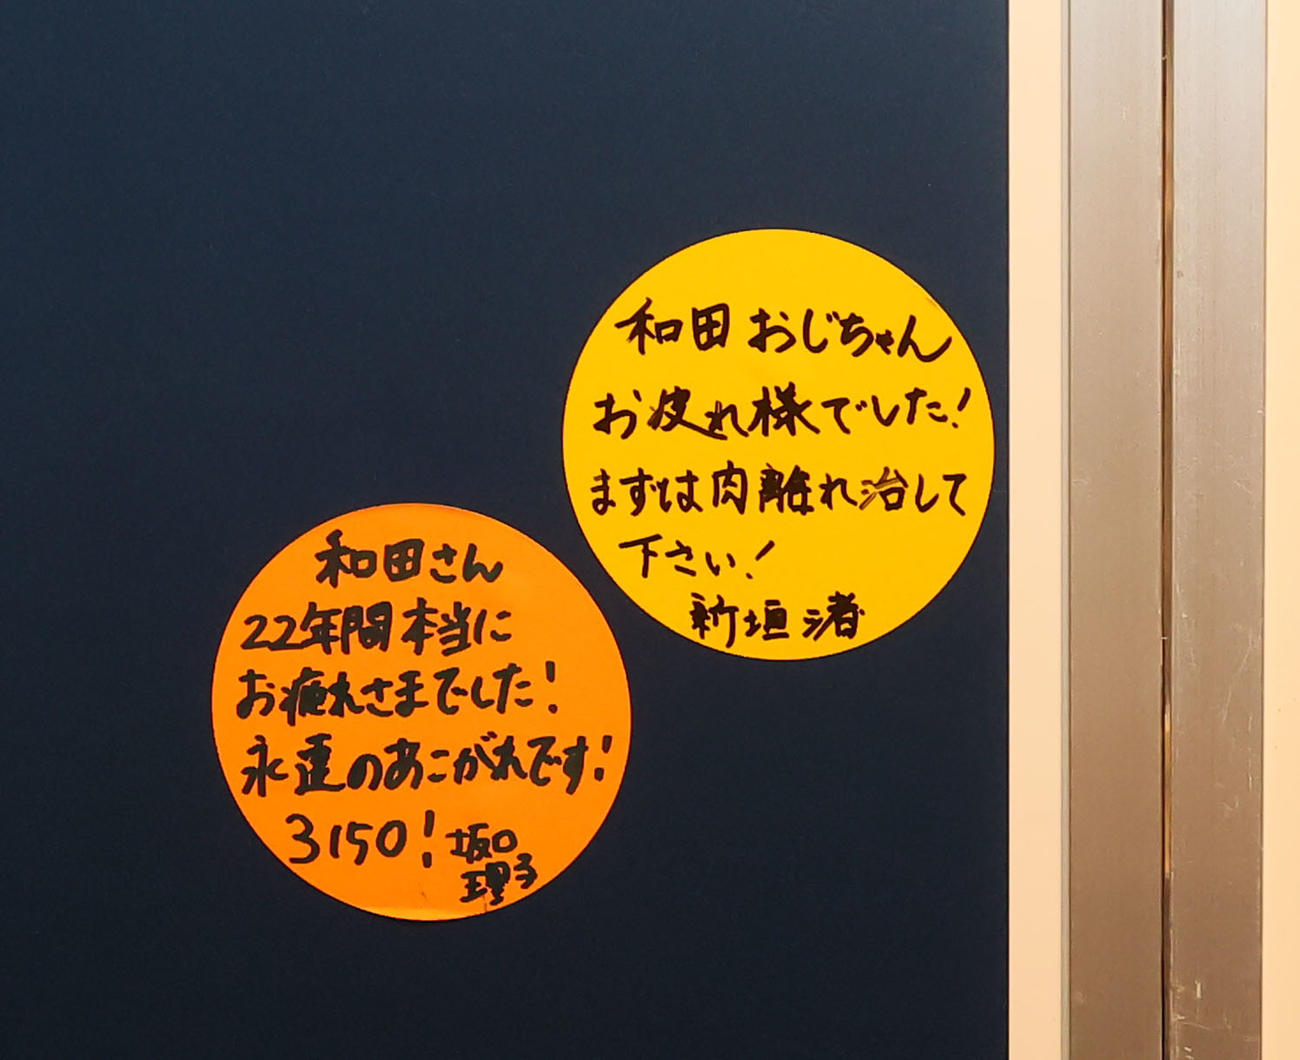 和田おじちゃん
お疲れ様でした!
まずは肉離れ治して
下さい!
新垣渚
和田さん
22年間本当に
お疲れさまでした!
永遠のあこがれです!
3150!坂口
理子